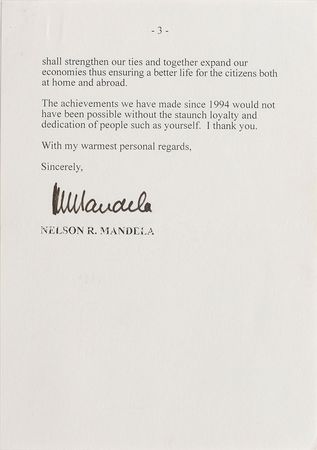 - 3 -
shall strengthen our ties and together expand our
economies thus ensuring a better life for the citizens both
at home and abroad.
The achievements we have made since 1994 would not
have been possible without the staunch loyalty and
dedication of people such as yourself. I thank you.
With my warmest personal regards,
Sincerely,
NMandela
NELSON R. MANDELA